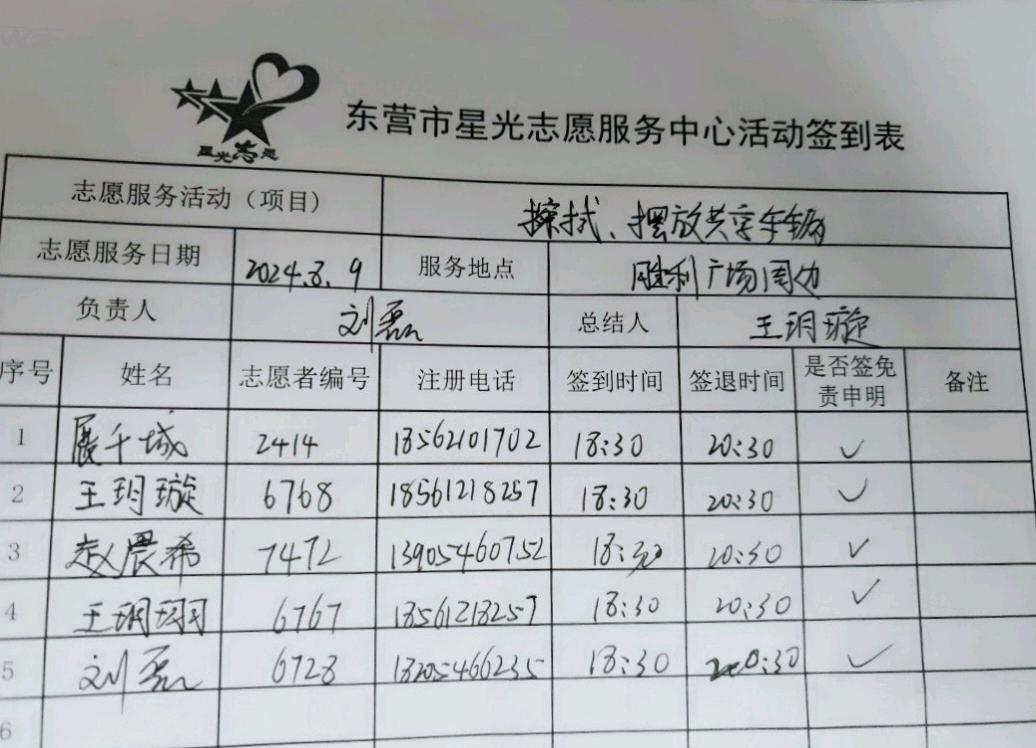 星光志愿
东营市星光志愿服务中心活动签到表
志愿服务活动（项目） 擦拭、摆放共享车辆
志愿服务日期 2024.8.9 服务地点 胜利广场周边
负责人 刘磊 总结人 王玥璇
序号 姓名 志愿者编号 注册电话 签到时间 签退时间 是否签免责申明 备注
1 展千城 2414 18562101702 18:30 20:30 ✓
2 王玥璇 6768 18561218257 18:30 20:30 ✓
3 赵晨希 7472 13905460752 18:30 20:30 ✓
4 王玥翔 6767 18561218257 18:30 20:30 ✓
5 刘磊 6728 18205466235 18:30 20:30 ✓
6